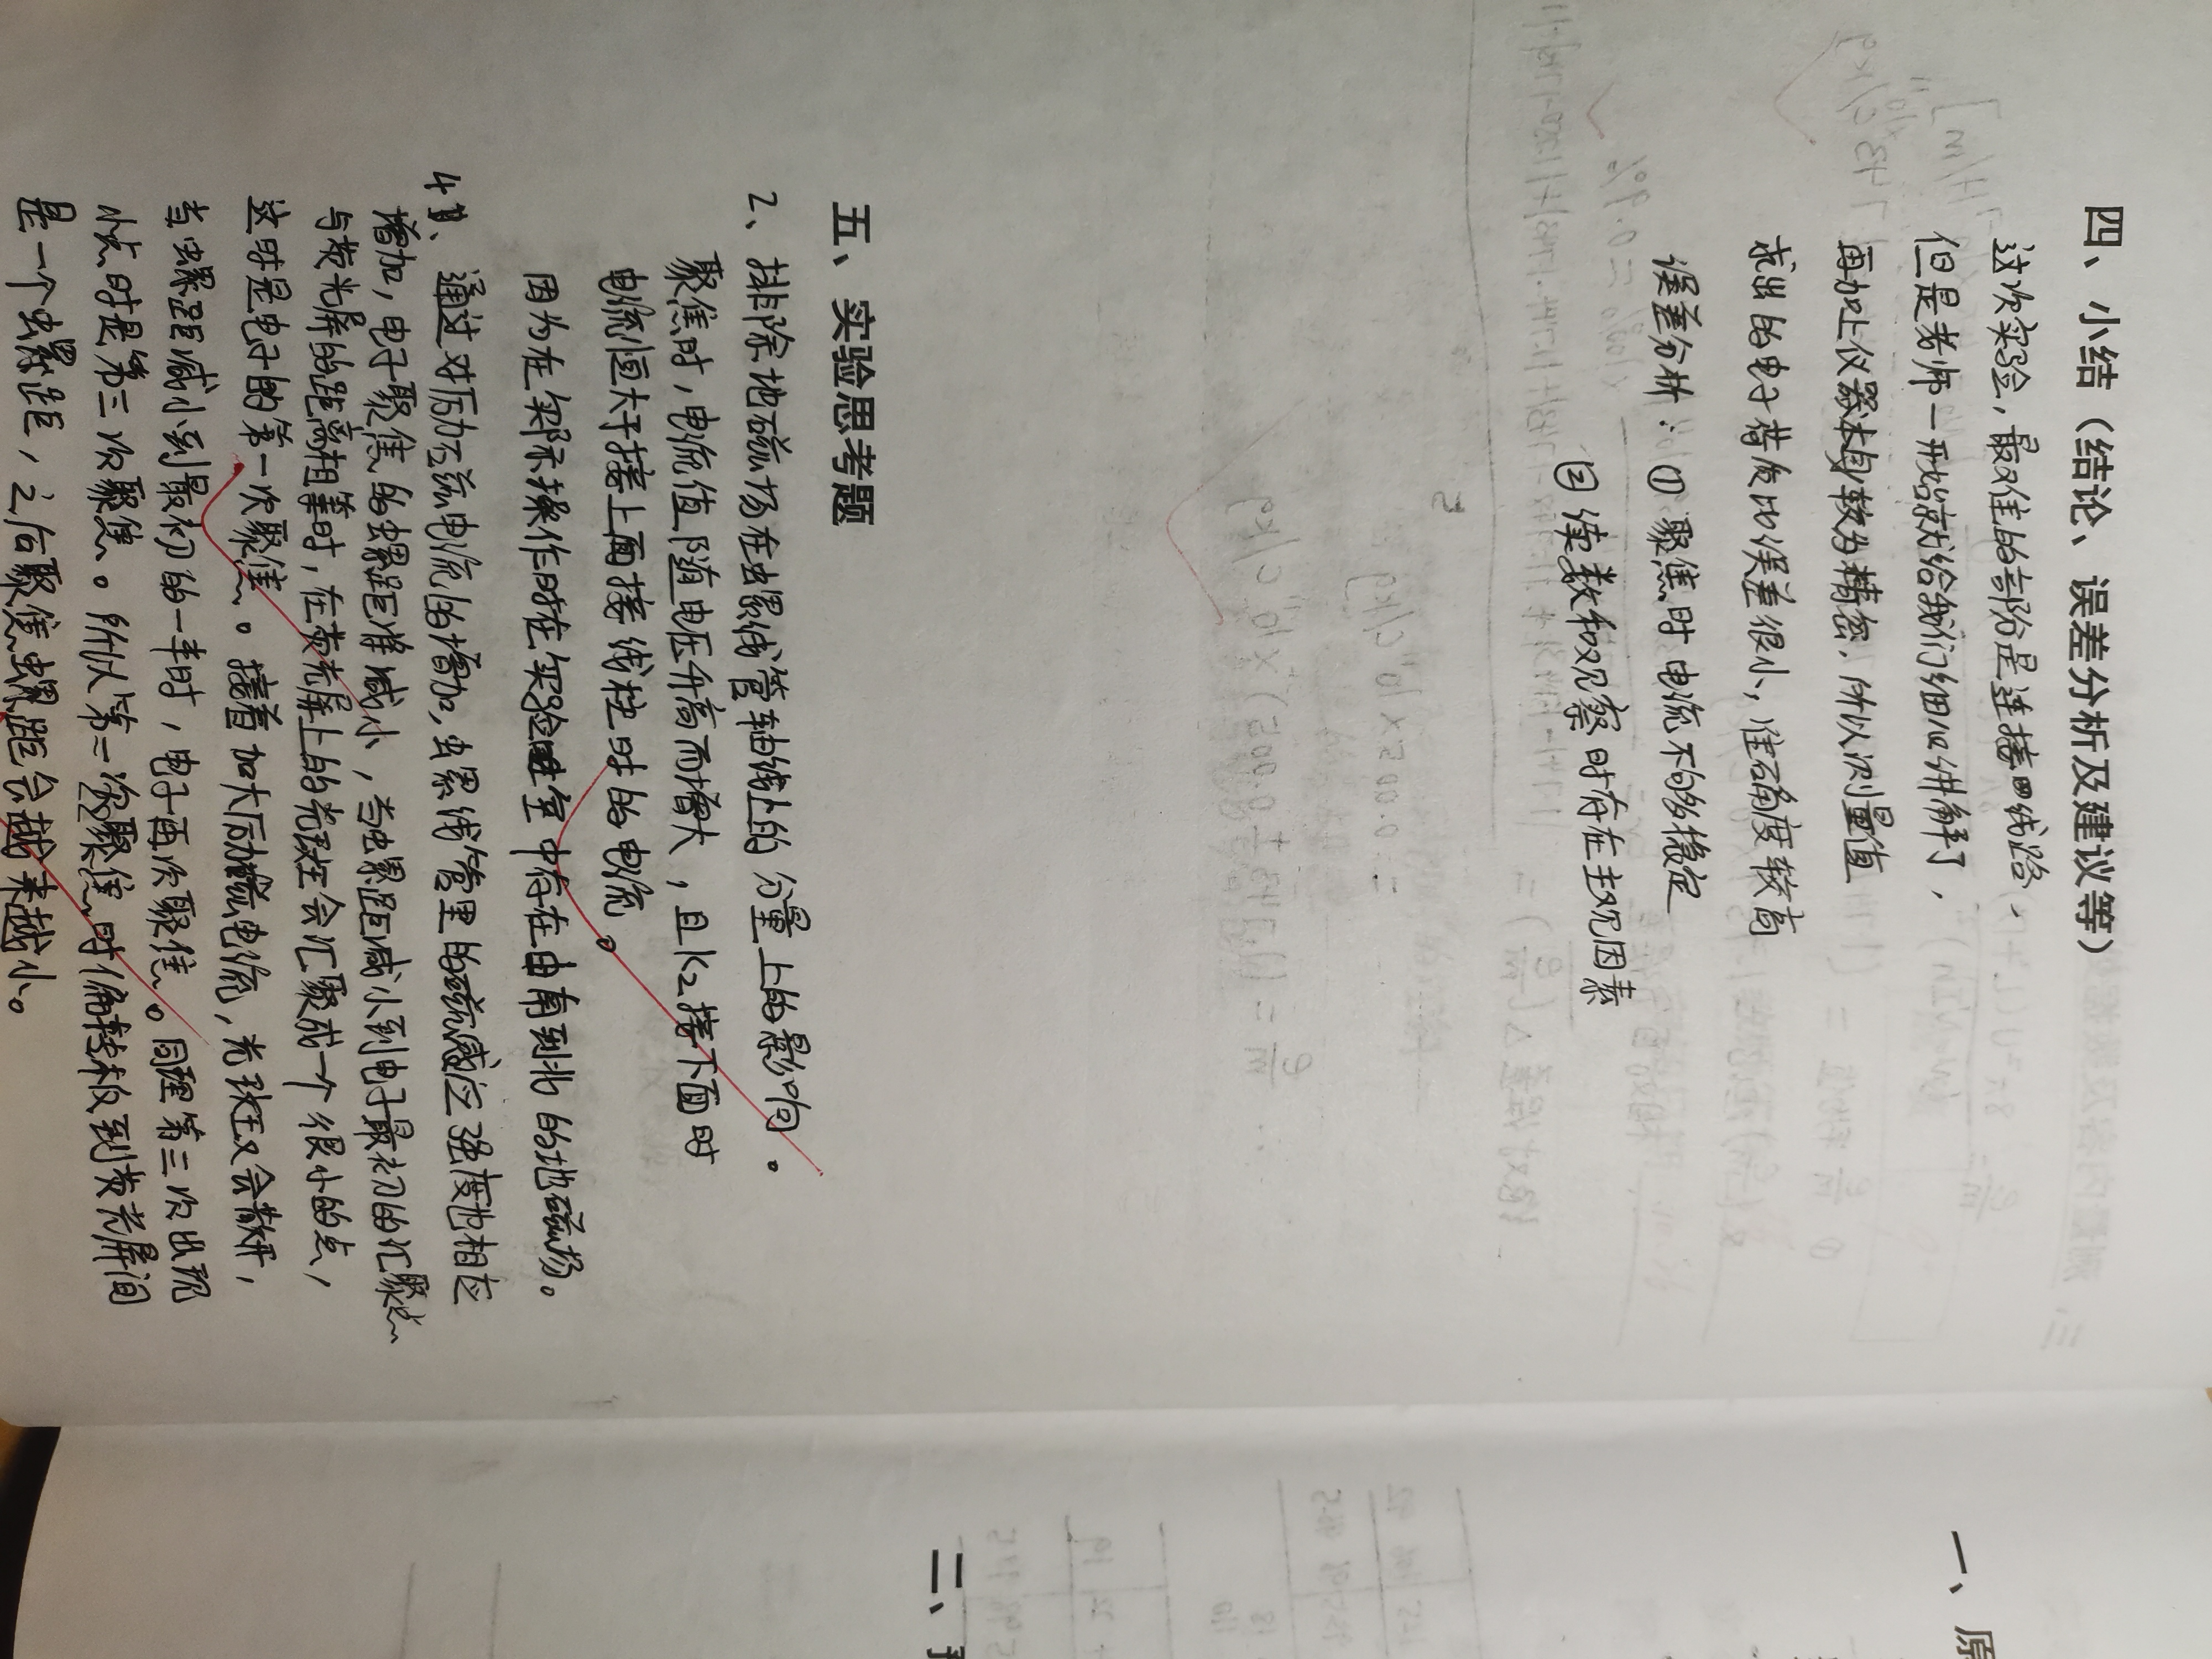 四、小结（结论、误差分析及建议等）
这次实验，最难的部分是连接线路，
但是老师一开始就给我们细心讲解了，
再加上仪器本身较为精密，所以测量值
求出的电子荷质比误差很小，准确度较高
误差分析：① 聚焦时电流不够稳定
② 读数和观察时存在主观因素
五、实验思考题
2、排除地磁场在螺线管轴线上的分量上的影响。
聚焦时，电流值随电压升高而增大，且K2接下面时
电流恒大于接上面接线柱时的电流。
因为在实际操作时在实验室中存在由南到北的地磁场。
4、通过对励磁电流的增加，螺线管里的磁感应强度也相应
增加，电子聚焦的螺距准减小，当螺距减小到电子最初的汇聚点
与荧光屏的距离相等时，在荧光屏上的光斑会汇聚成一个很小的点，
这时是电子的第一次聚焦。接着加大励磁电流，光斑又会散开，
当螺距减小到最初的一半时，电子再次聚焦。同理第三次出现
小点时是第三次聚焦。所以第二次聚焦时偏转板到荧光屏间
是一个螺距，之后聚焦螺距会越来越小。
一、原
二、